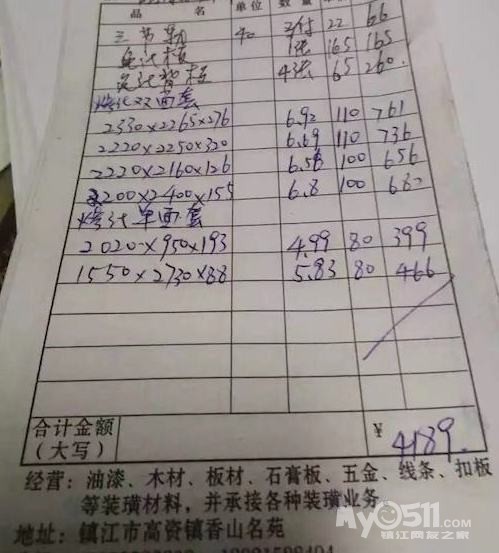 品 名 单位 数量
三节轨 40 2付 22 66
免漆板 1张 165 165
免漆背板 4张 65 260
烤漆双面套
2330×2265×276 6.92 110 761
2220×2250×320 6.69 110 736
2220×2160×126 6.56 100 656
2200×2400×155 6.8 100 680
烤漆单面套
2020×950×193 4.99 80 399
1550×2730×88 5.83 80 466
合计金额 ¥ 4189.
(大写)
经营：油漆、木材、板材、石膏板、五金、线条、扣板
等装璜材料，并承接各种装璜业务
地址：镇江市高资镇香山名苑
My0511.com
镇江网友之家